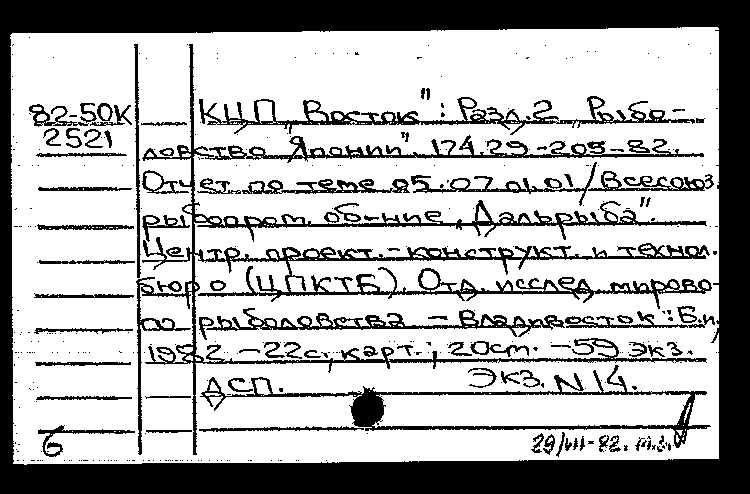 82-50К КЦП „Восток": Разд.2 „Рыбо-
2521 ловство Японии". 174.29-205-82.
Отчет по теме 05.07.01.01/Всесоюз.
рыбопром. об-ние „Дальрыба".
Центр. проект.-конструкт. и технол.
бюро (ЦПКТБ). Отд. исслед. мирово-
го рыболовства – Владивосток: Б.и.,
1982. –22с., карт.; 20см. –59 экз.
ДСП. Экз. N 14.
6 29/VIII-82.